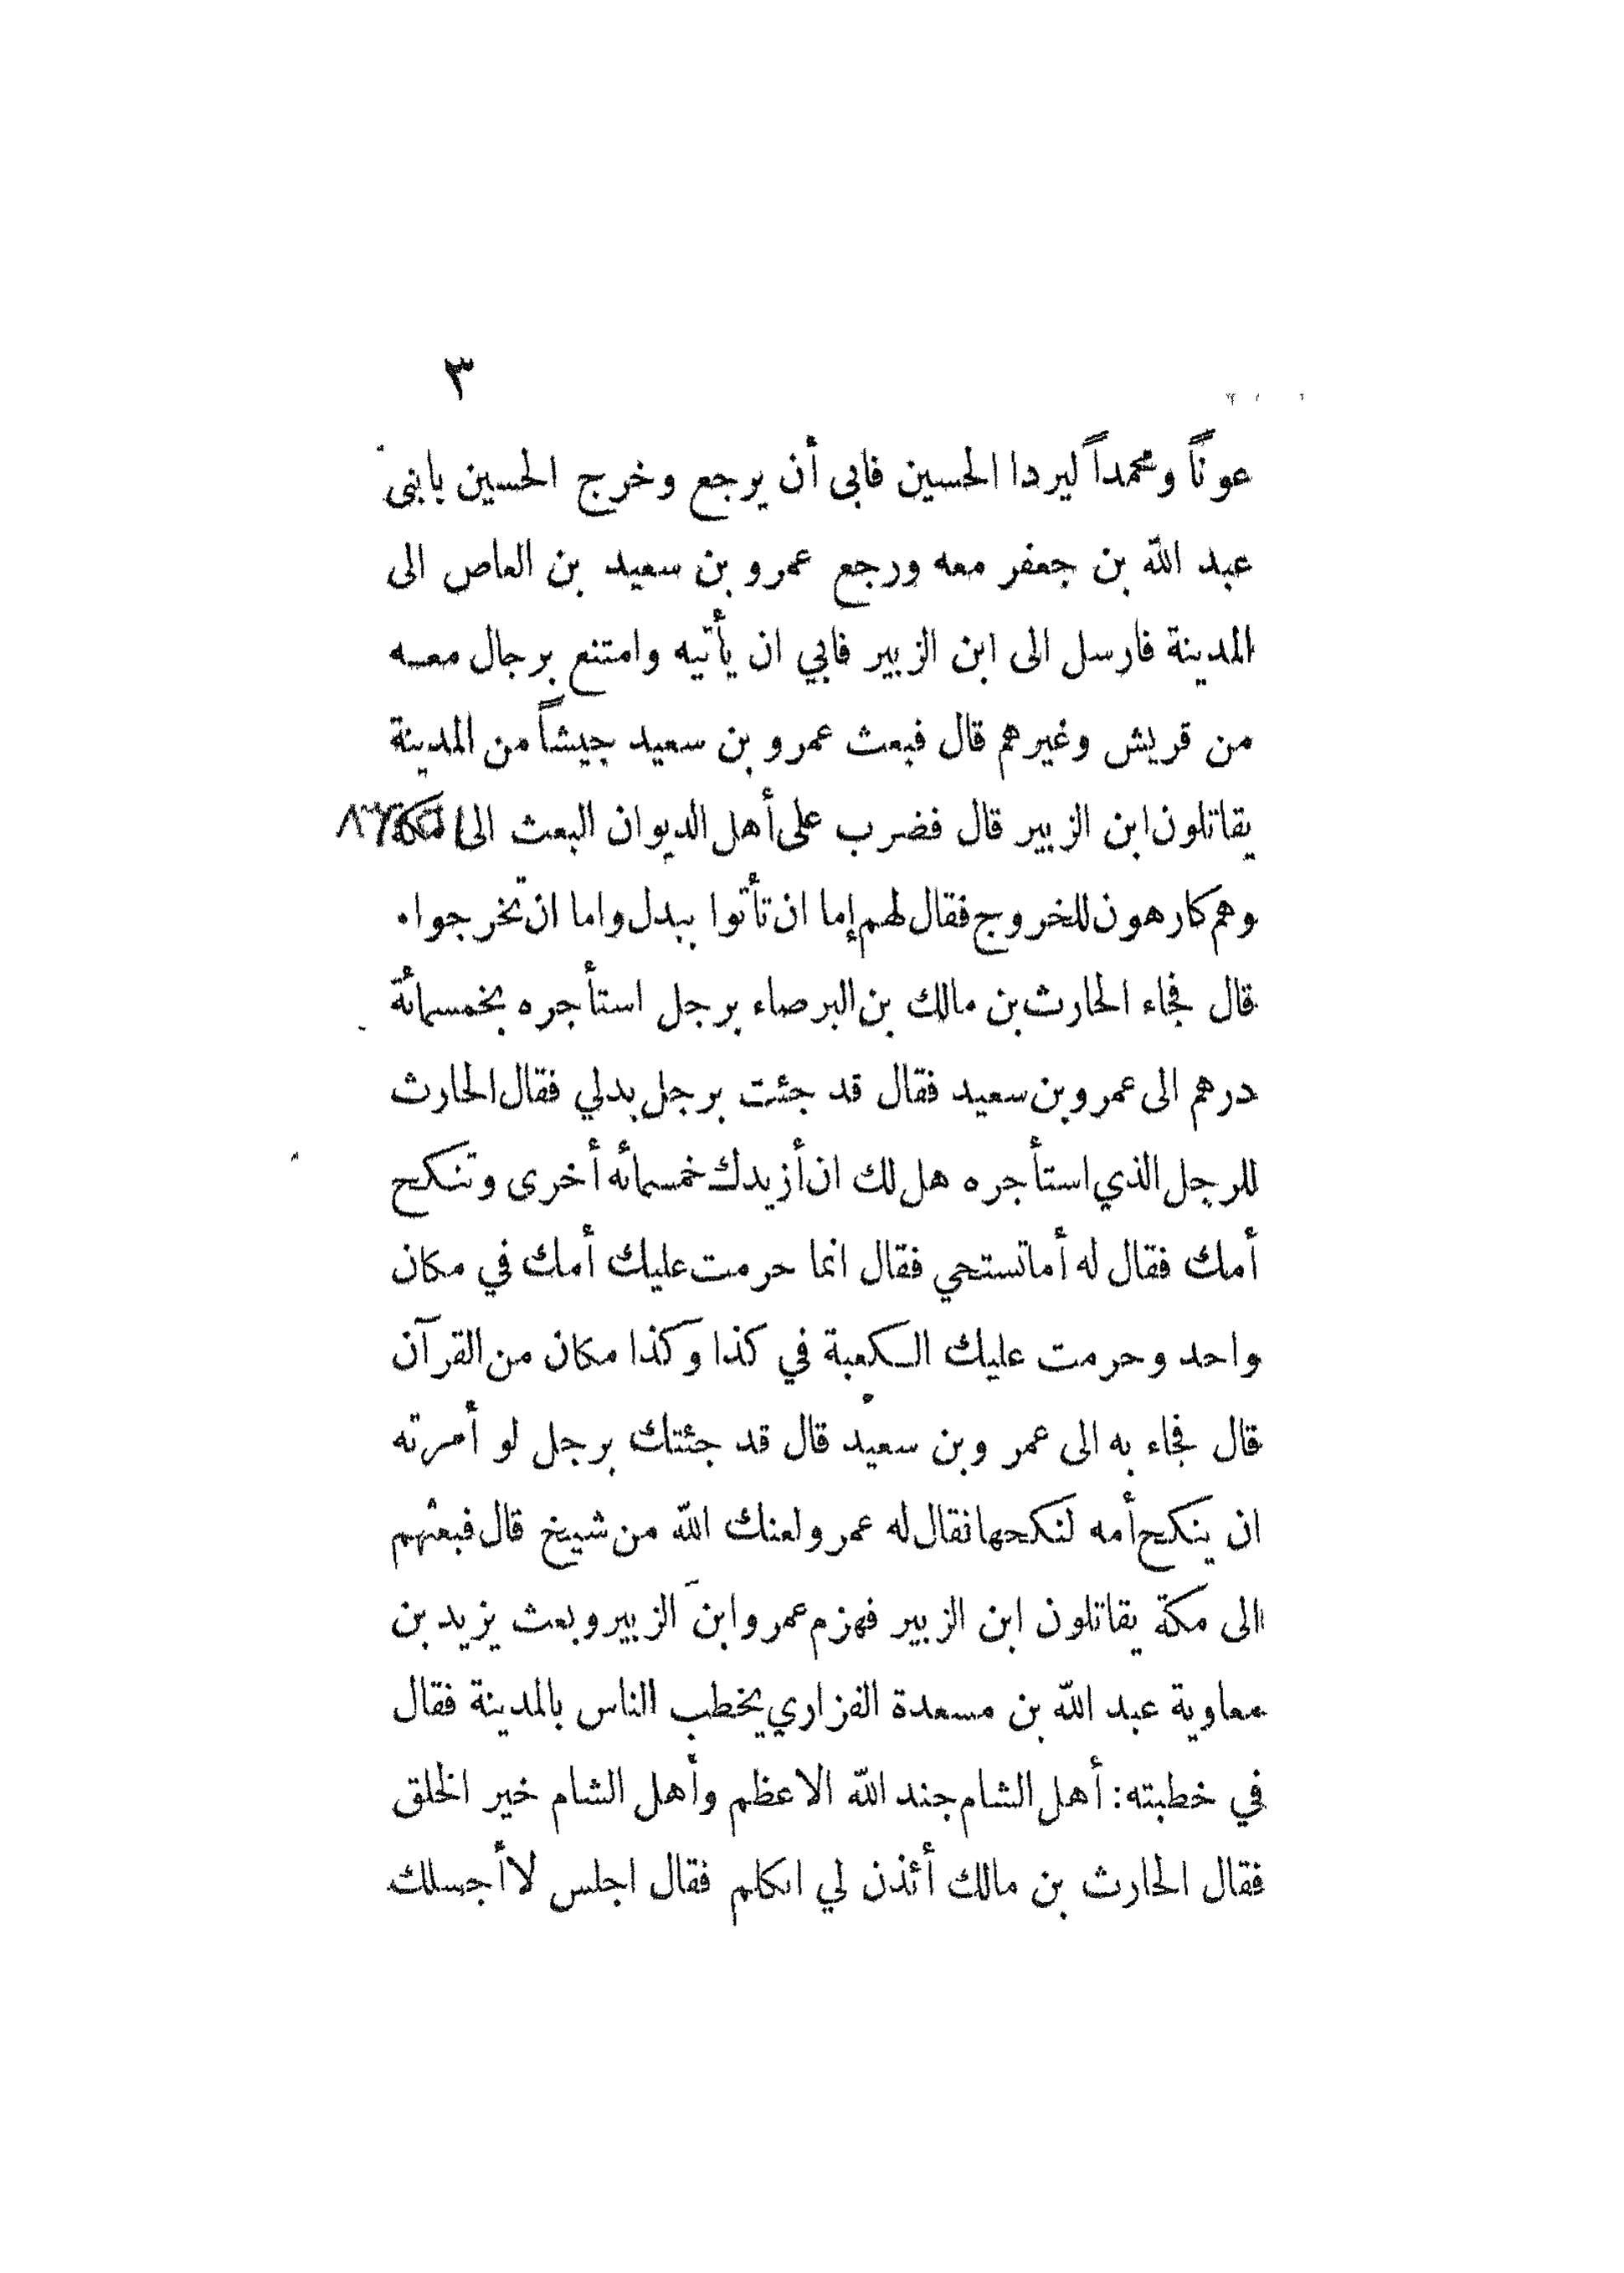 ٣
عوناً ومحمداً ليردا الحسين فابى أن يرجع وخرج الحسين بابنى
عبد الله بن جعفر معه ورجع عمرو بن سعيد بن العاص الى
المدينة فارسل الى ابن الزبير فابي ان يأتيه وامتنع برجال معه
من قريش وغيرهم قال فبعث عمرو بن سعيد جيشاً من المدينة
يقاتلون ابن الزبير قال فضرب على أهل الديوان البعث الى مكة
وهم كارهون للخروج فقال لهم إما ان تأتوا ببدل واما ان تخرجوا.
قال فجاء الحارث بن مالك بن البرصاء برجل استأجره بخمسمائة
درهم الى عمرو بن سعيد فقال قد جئت برجل بدلي فقال الحارث
للرجل الذي استأجره هل لك ان أزيدك خمسمائه أخرى وتنكح
أمك فقال له أما تستحي فقال انما حرمت عليك أمك في مكان
واحد وحرمت عليك الكعبة في كذا وكذا مكان من القرآن
قال فجاء به الى عمرو بن سعيد قال قد جئتك برجل لو أمرته
ان ينكح أمه لنكحها فقال له عمرو لعنك الله من شيخ قال فبعثهم
الى مكة يقاتلون ابن الزبير فهزم عمرو ابن الزبير وبعث يزيد بن
معاوية عبد الله بن مسعدة الفزاري يخطب الناس بالمدينة فقال
في خطبته: أهل الشام جند الله الاعظم وأهل الشام خير الخلق
فقال الحارث بن مالك أئذن لي اتكلم فقال اجلس لا أجسلك